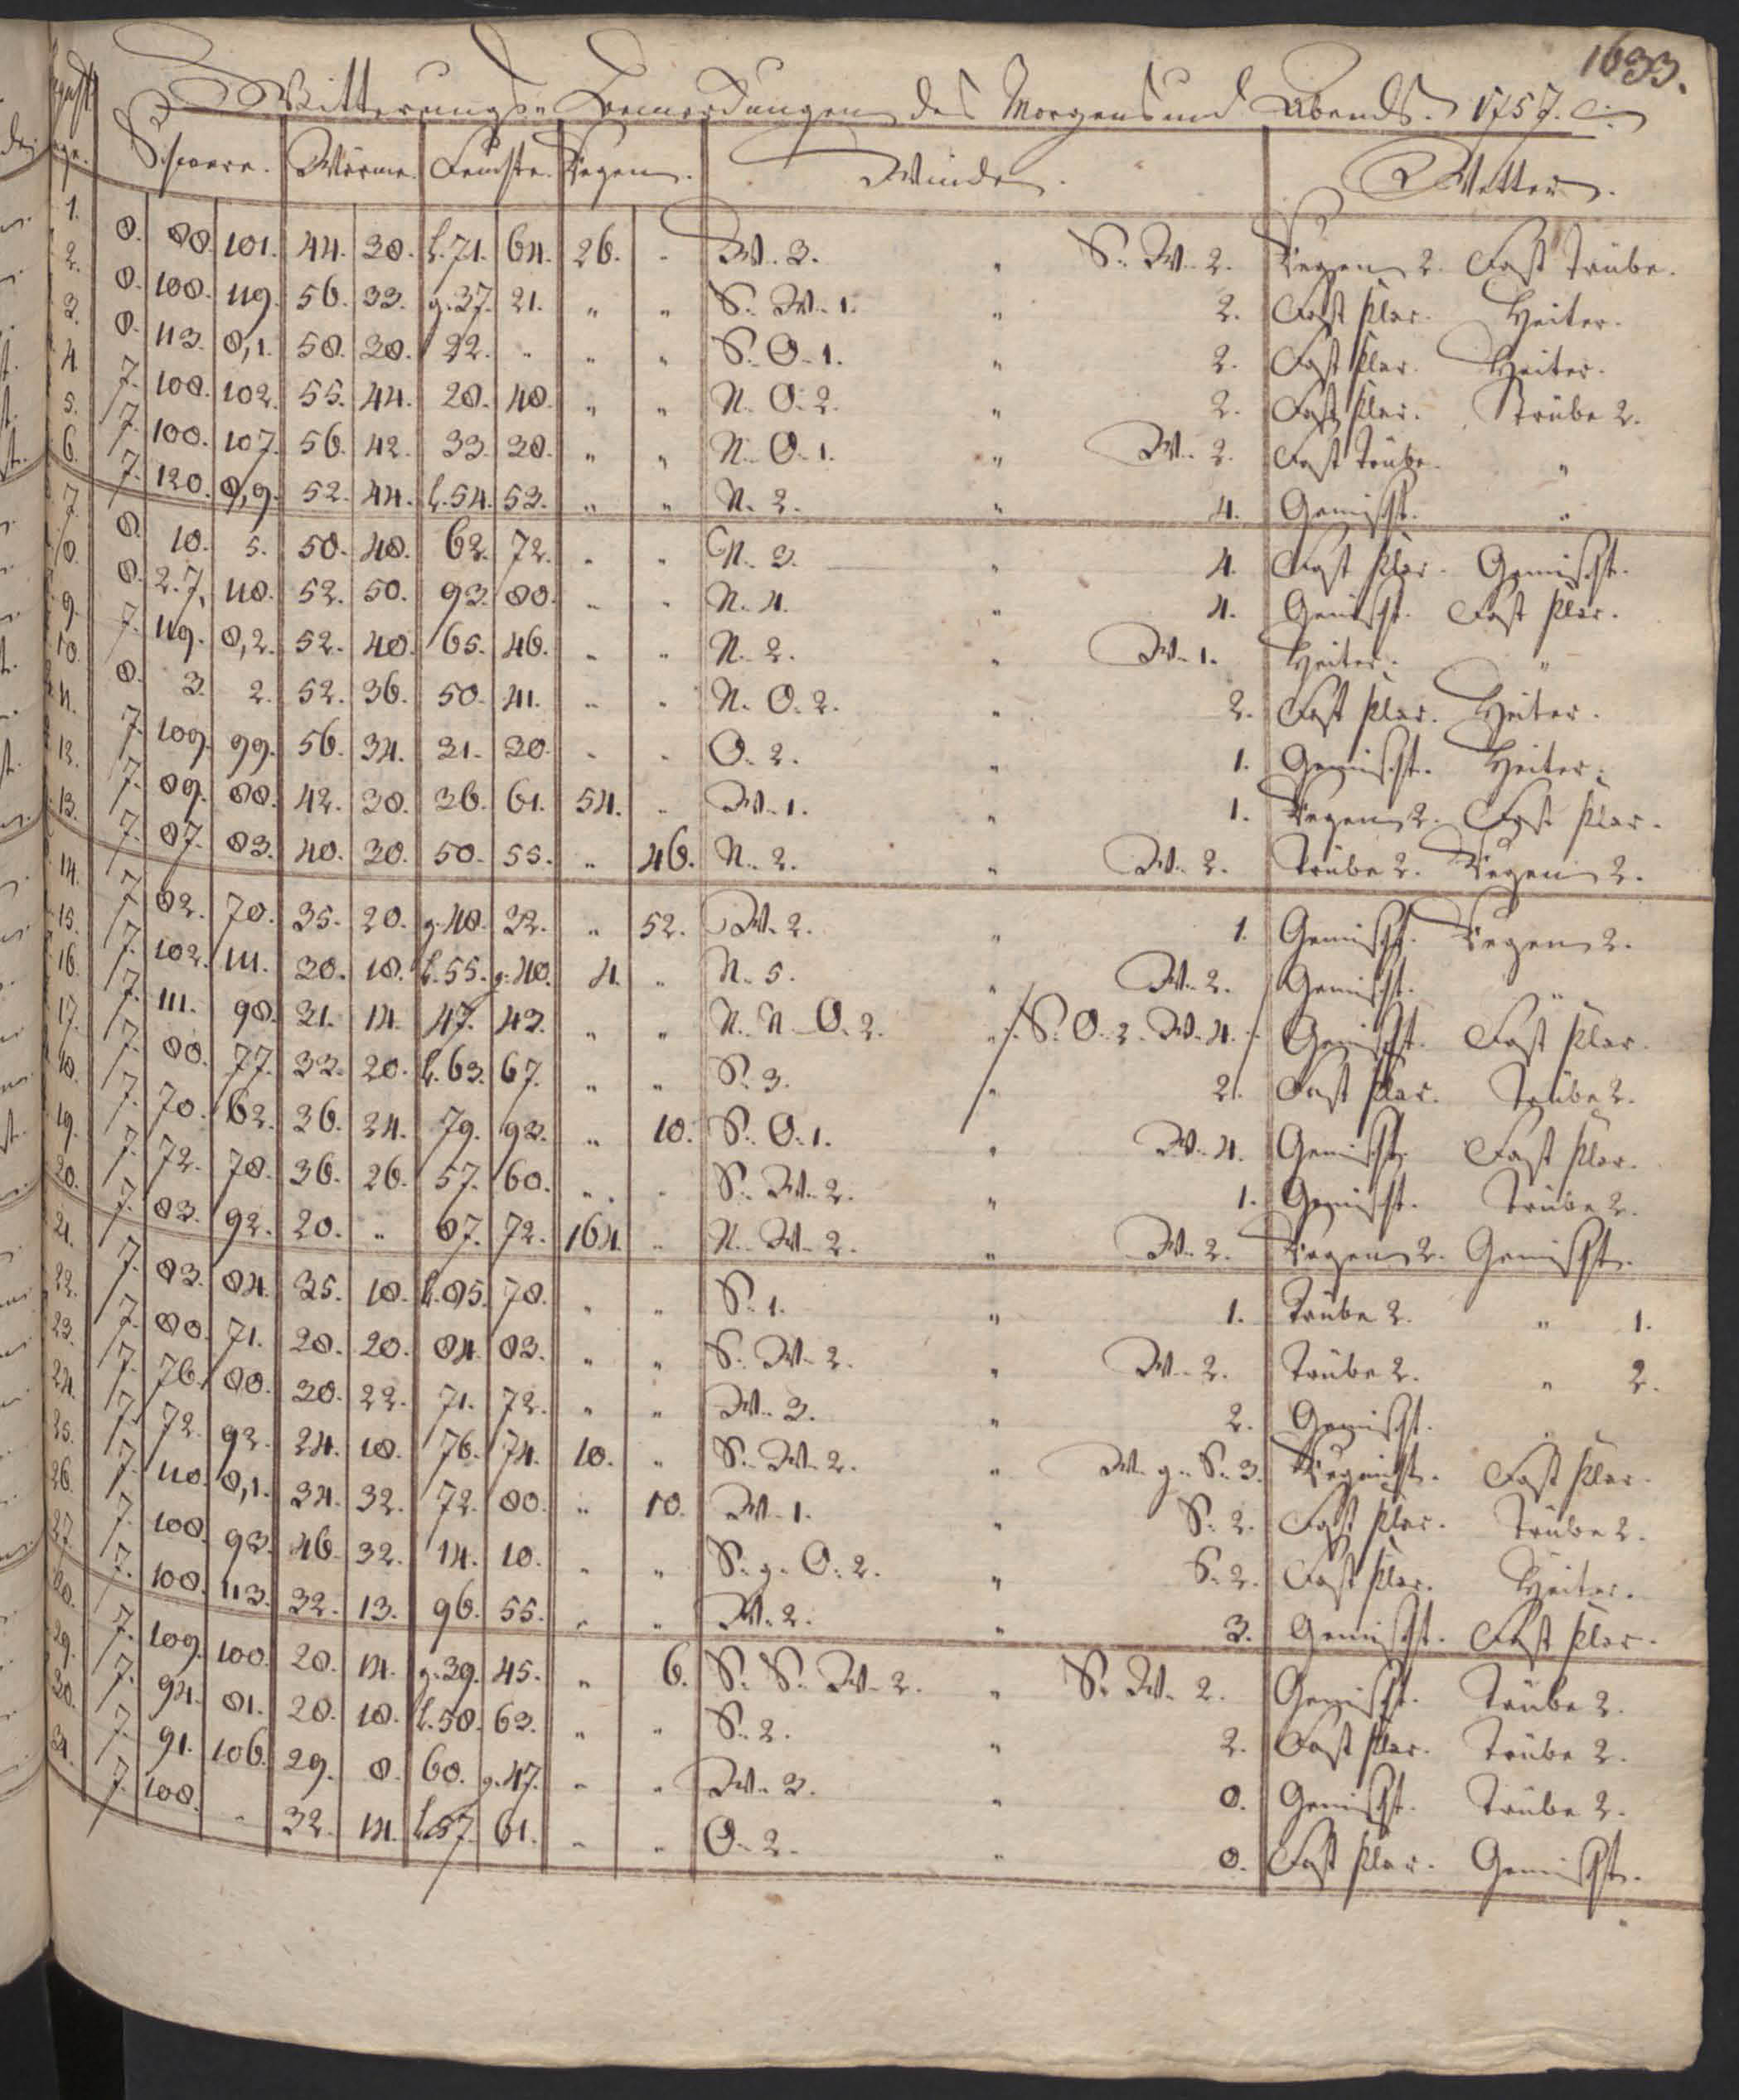 1633.
Witterungs- Bemerckungen des Morgens und Abends. 1757.
Schwere. Wärme. Feuchte. Regen. Winde. Wetter.
1. 8. 88. 101. 44. 38. l. 71. 64. 26. " W. 3. " S. W. 2. Regen 2. Fast Trübe.
2. 8. 108. 119. 56. 33. g. 37. 21. " " S. W. 1. " 2. Fast klar. Heiter.
3. 8. 113. 8,1. 58. 38. 22. " " " S. O. 1. " 2. Fast klar. Heiter.
4. 7. 108. 102. 55. 44. 28. 48. " " N. O. 2. " 2. Fast klar. Trübe 2.
5. 7. 100. 107. 56. 42. 33. 38. " " N. O. 1. " W. 2. Fast Trübe. "
6. 7. 120. 8,9. 52. 44. l. 54. 53. " " N. 2. " 4. Gemischt. "
7. 8. 10. 5. 50. 48. 62. 72. " " N. 3. " 4. Fast klar. Gemischt.
8. 8. 2.7, 118. 52. 50. 93. 80. " " N. 4. " 4. Gemischt. Fast klar.
9. 7. 119. 8,2. 52. 40. 65. 46. " " N. 2. " W. 1. Heiter. "
10. 8. 3. 2. 52. 36. 50. 41. " " N. O. 2. " 2. Fast klar. Heiter.
11. 7. 109. 99. 56. 34. 31. 30. " " O. 2. " 1. Gemischt. Heiter.
12. 7. 89. 88. 42. 38. 36. 61. 54. " W. 1. " 1. Regen 2. Fast klar.
13. 7. 87. 83. 40. 30. 50. 55. " 46. N. 2. " W. 2. Trübe 2. Regen 2.
14. 7. 82. 70. 35. 20. g. 48. 32. " 52. W. 2. " 1. Gemischt. Regen 2.
15. 7. 102. 111. 30. 18. l. 55. g. 40. 4. " N. 5. " W. 2. Gemischt. "
16. 7. 111. 98. 31. 14. 47. 43. " " N. N. O. 2. " S. O. 2. W. 4. Gemischt. Fast klar.
17. 7. 80. 77. 33. 20. l. 63. 67. " " S. 3. " 2. Fast klar. Trübe 2.
18. 7. 70. 62. 36. 24. 79. 92. " 10. S. O. 1. " W. 4. Gemischt. Fast klar.
19. 7. 72. 78. 36. 26. 57. 60. " " S. W. 2. " 1. Gemischt. Trübe 2.
20. 7. 83. 92. 20. " 87. 72. 164. " N. W. 2. " W. 2. Regen 2. Gemischt.
21. 7. 83. 84. 35. 18. l. 85. 78. " " S. 1. " 1. Trübe 2. " 1.
22. 7. 80. 71. 28. 20. 84. 83. " " S. W. 2. " W. 2. Trübe 2. " 2.
23. 7. 76. 80. 30. 22. 71. 72. " " W. 3. " 2. Gemischt. "
24. 7. 72. 92. 24. 18. 76. 74. 10. " S. W. 2. " W. g. S. 3. Fast klar.
25. 7. 110. 8,1. 34. 32. 72. 80. " 10. W. 1. " S. 2. Fast klar. Trübe 2.
26. 7. 108. 93. 46. 32. 14. 10. " " S. g. O. 2. " S. 2. Fast klar. Heiter.
27. 7. 108. 113. 32. 13. 96. 55. " " W. 2. " 3. Gemischt. Fast klar.
28. 7. 109. 100. 28. 14. g. 39. 45. " 6. S. S. W. 2. " S. W. 2. Gemischt. Trübe 2.
29. 7. 94. 81. 28. 18. l. 58. 63. " " S. 2. " 2. Fast klar. Trübe 2.
30. 7. 91. 106. 29. 8. 60. g. 47. " " W. 3. " 0. Gemischt. Trübe 2.
31. 7. 108. " 32. 14. l. 57. 61. " " O. 2. " 0. Fast klar. Gemischt.